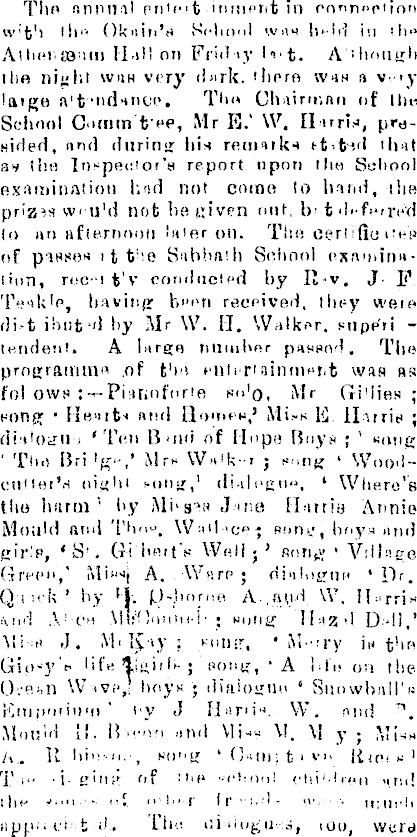 The annual entertainment in connection
with the Okain's School was held in the
Athenæum Hall on Friday last. Although
the night was very dark, there was a very
large attendance. The Chairman of the
School Committee, Mr E. W. Harris, pre-
sided, and during his remarks stated that
as the Inspector's report upon the School
examination had not come to hand, the
prizes would not be given out, but deferred
to an afternoon later on. The certificates
of passes at the Sabbath School examina-
tion, recently conducted by Rev. J. F.
Teakle, having been received, they were
distributed by Mr W. H. Walker, superi -
tendent. A large number passed. The
programme of the entertainment was as
follows :—Pianoforte solo, Mr Gillies ;
song ' Hearts and Homes,' Miss E. Harris ;
dialogue ' Ten Band of Hope Boys ; ' song
' The Bridge,' Mrs Walker ; song ' Wood-
cutter's night song,' dialogue, ' Where's
the harm ' by Misses Jane Harris Annie
Mould and Thos. Wallace ; song, boys and
girls, ' St. Gilbert's Well ; ' song ' Village
Green,' Miss A. Ware ; dialogue ' Dr.
Quack ' by H. Osborne A. and W. Harris
and Alice McConnell ; song ' Hazel Dell,'
Miss J. McKay ; song, ' Merry is the
Gipsy's life ' girls ; song, ' A life on the
Ocean Wave,' boys ; dialogue ' Snowball's
Emporium ' by J Harris, W. and
Mould H. Bacon and Miss M. May ; Miss
A. song '
The singing of the school children and
the songs of other friends were much
appreciated. The dialogues, too, were